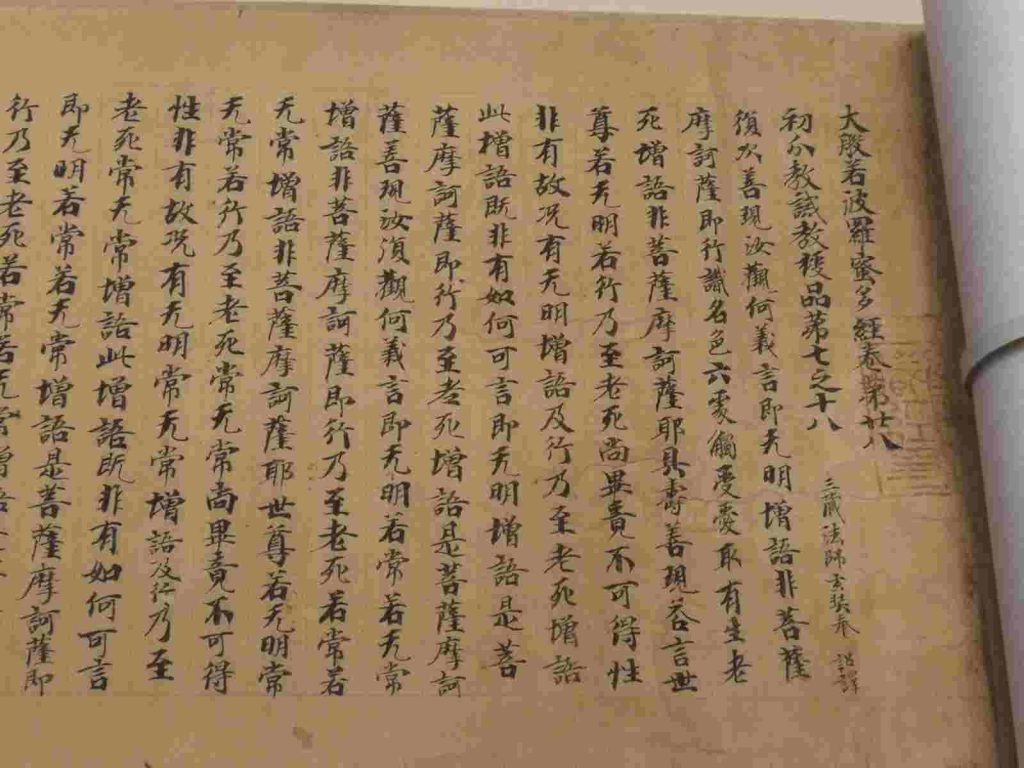 大般若波羅蜜多經卷第廿八
初分教誡教授品第七之十八 三藏法師玄奘奉 詔譯
復次善現汝觀何義言即无明增語非菩薩
摩訶薩即行識名色六處觸受愛取有生老
死增語非菩薩摩訶薩耶具壽善現答言世
尊若无明若行乃至老死尚畢竟不可得性
非有故况有无明增語及行乃至老死增語
此增語既非有如何可言即无明增語是菩
薩摩訶薩即行乃至老死增語是菩薩摩訶
薩善現汝復觀何義言即无明若常若无常
增語非菩薩摩訶薩即行乃至老死若常若
无常增語非菩薩摩訶薩耶世尊若无明常
无常若行乃至老死常无常尚畢竟不可得
性非有故况有无明常无常增語及行乃至
老死常无常增語此增語既非有如何可言
即无明若常若无常增語是菩薩摩訶薩即
行乃至老死若常若无常增語